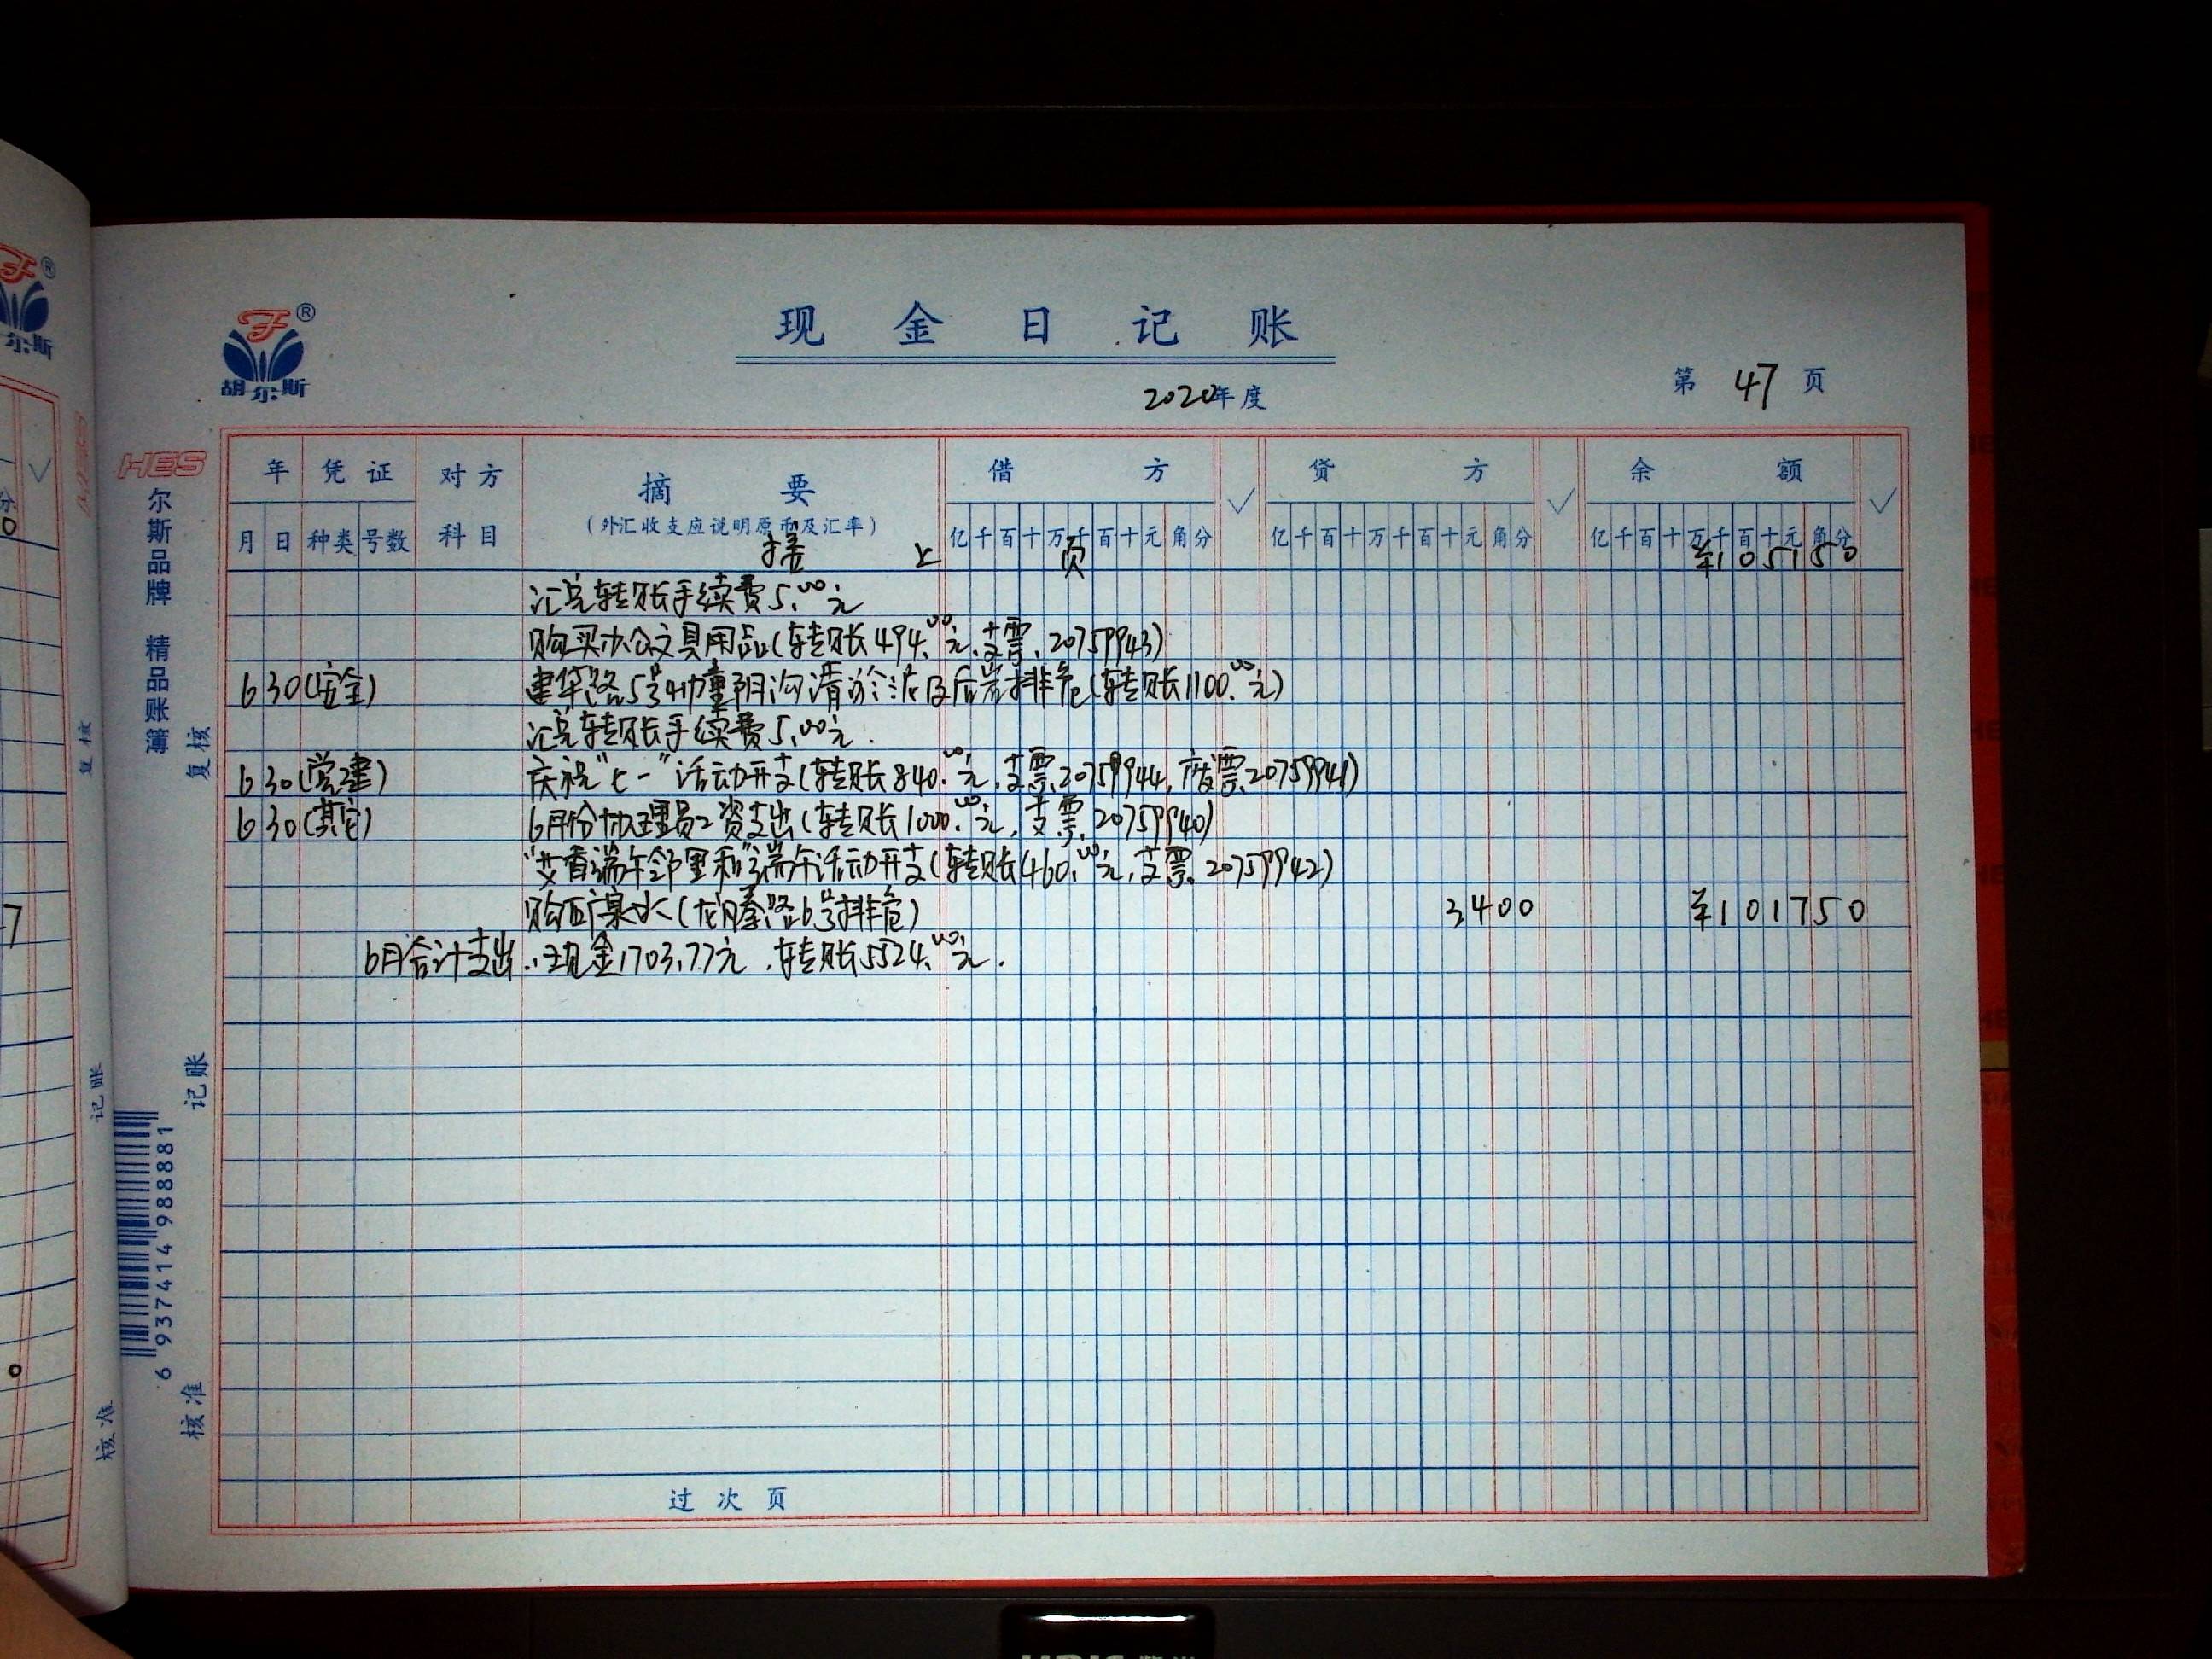 现金日记账
2020年度
第 47 页
胡尔斯®
HES
尔斯品牌 精品账簿
复核
记账
核准
6 937414 988881
年 凭证 对方 摘要 借方 ✓ 贷方 ✓ 余额 ✓
月 日 种类 号数 科目 (外汇收支应说明原币及汇率) 亿千百十万千百十元角分 亿千百十万千百十元角分 亿千百十万千百十元角分
接上页 ¥105150
汇兑转账手续费5.00元
购买办公文具用品(转账494.00元.支票.20759943)
6 30(安全) 建华路5号4幢阴沟清淤及后岩排危(转账1100.00元)
汇兑转账手续费5.00元.
6 30(党建) 庆祝"七一"活动开支(转账840.00元,支票.20759944,废票.20759941)
6 30(其它) 6月份协理员工资支出(转账1000.00元,支票.20759940)
"艾香端午邻里和"端午活动开支(转账1460.00元,支票.20759942)
购矿泉水(龙腾路6号排危) 3400 ¥101750
6月合计支出:现金1703.77元.转账5524.00元.
过次页
复核
记账
核准